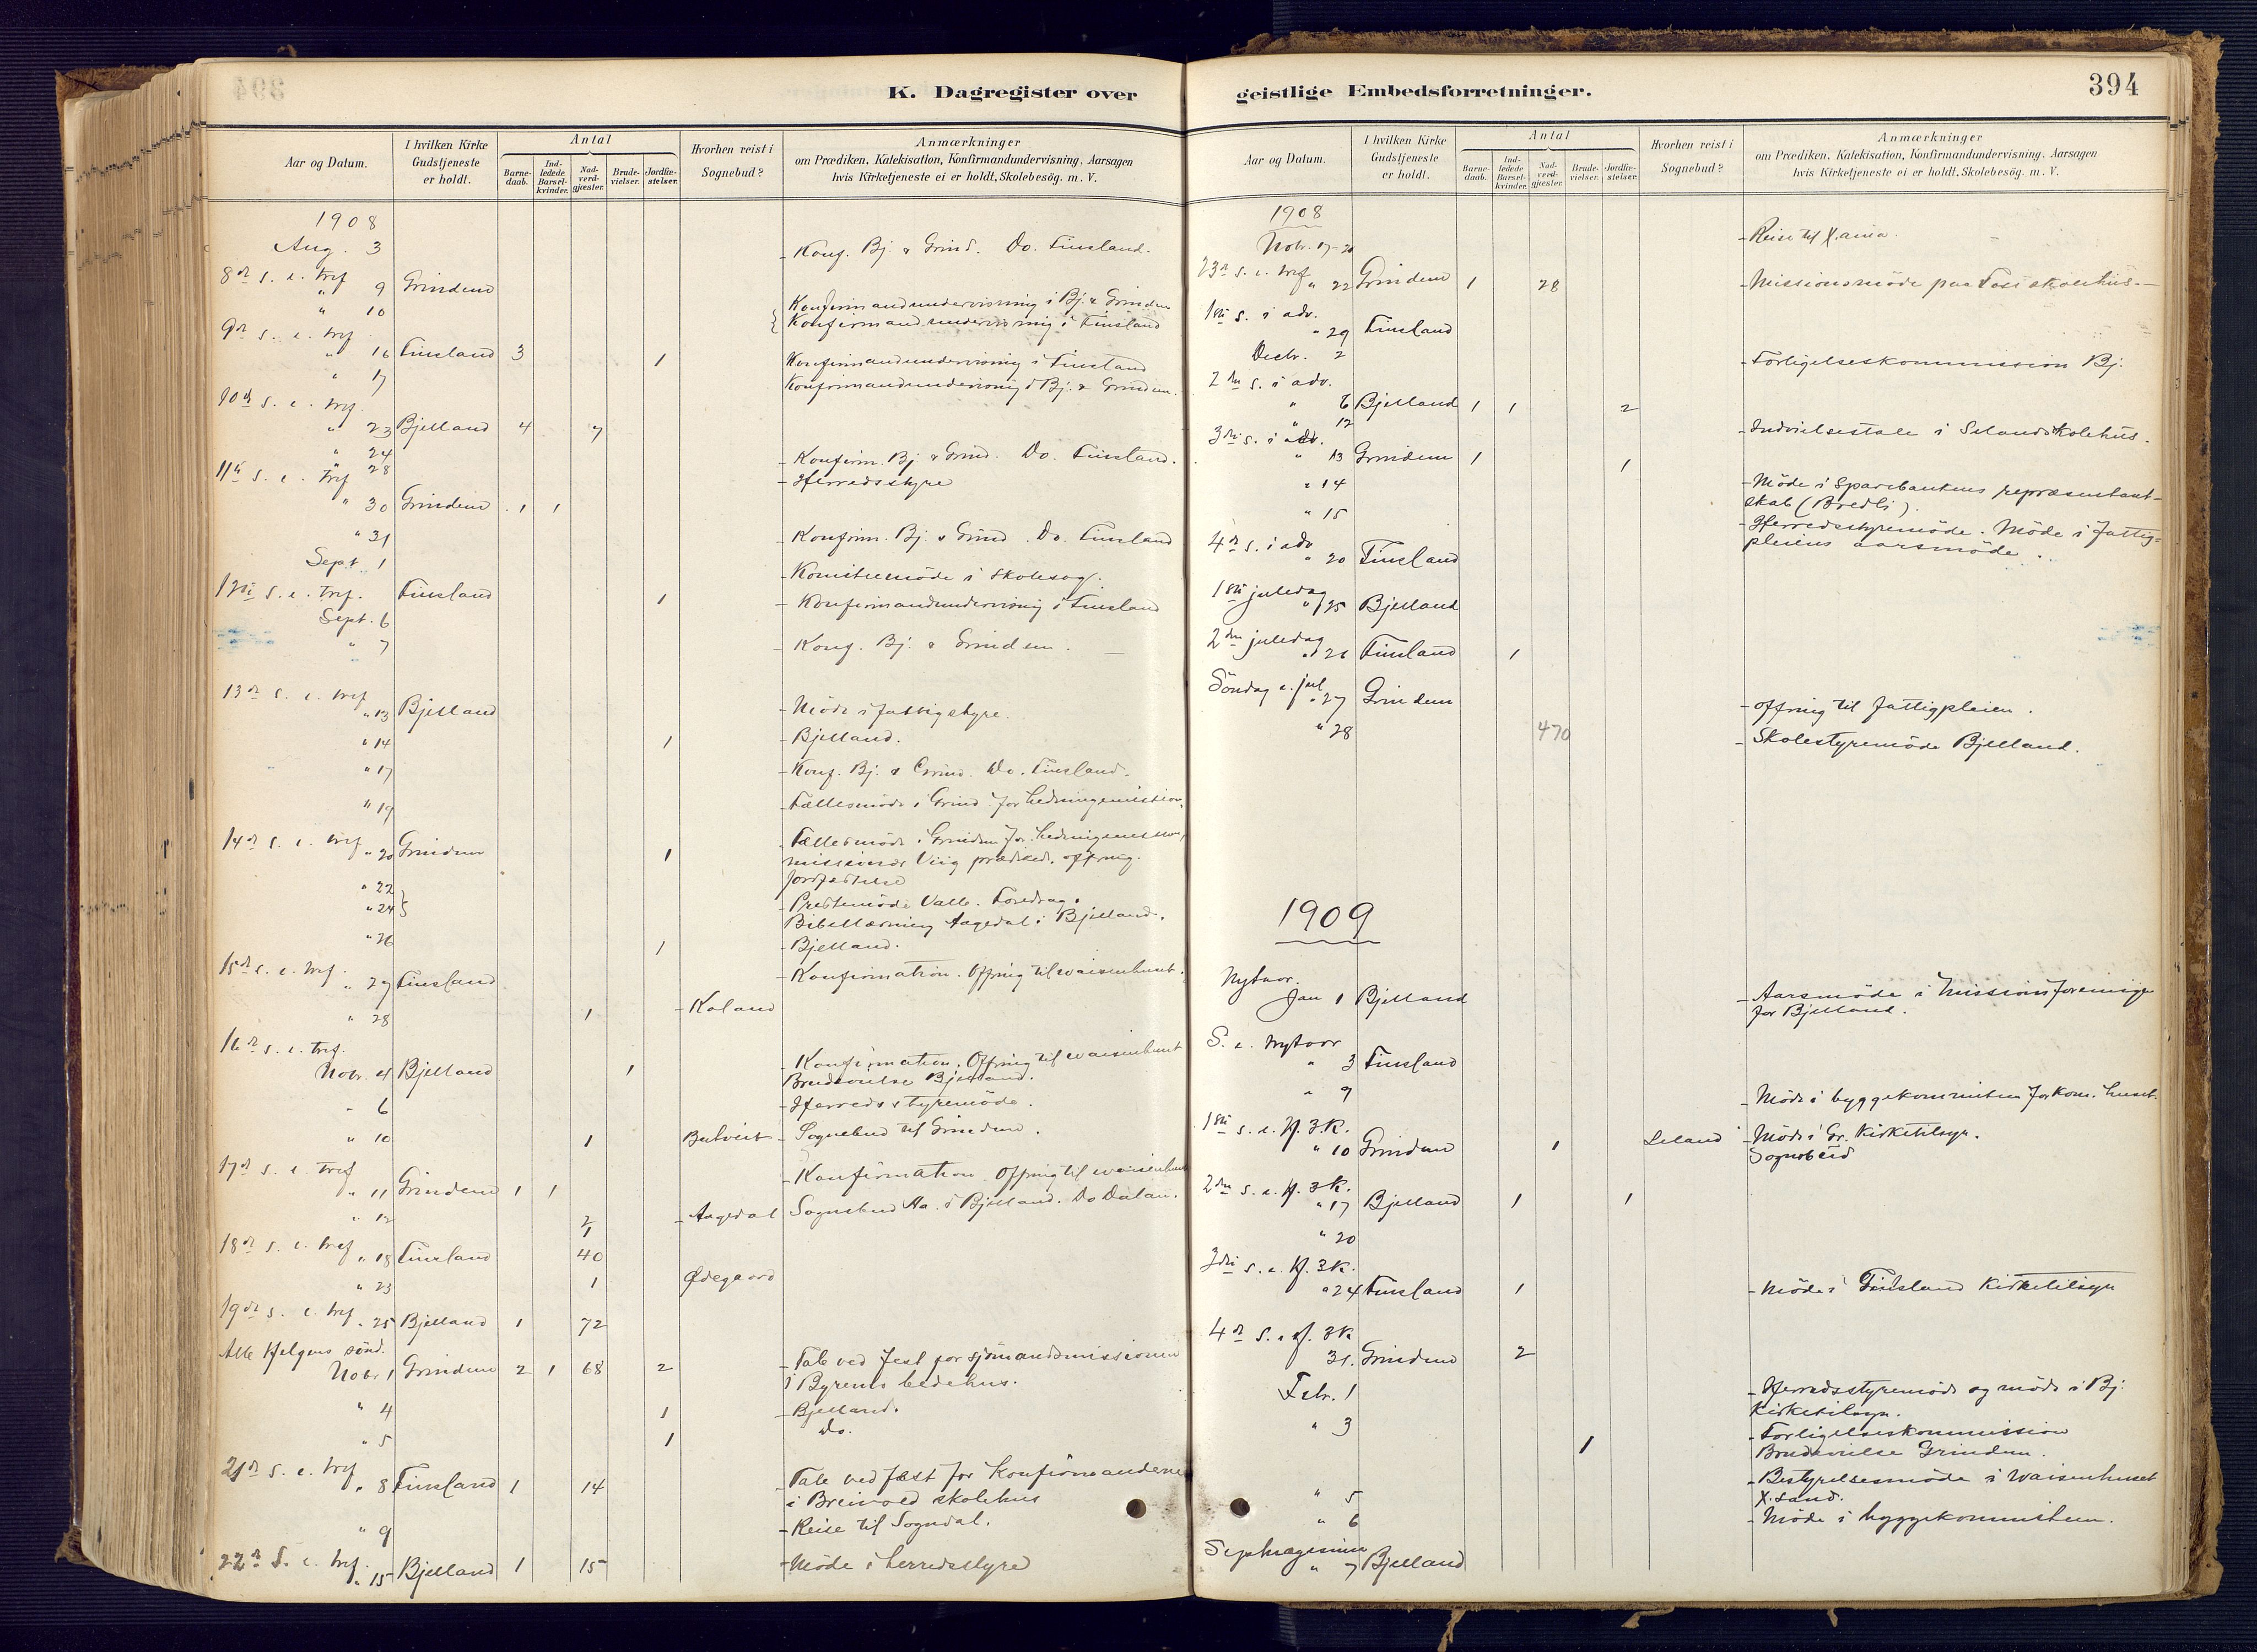 K. Dagregister over
Aar og Datum.
I hvilken Kirke
Gudstjeneste
er holdt.
Antal
Barne-
daab.
Ind-
ledede
Barsel-
kvinder.
Nad-
verd-
gjæster.
Brude-
vielser.
Jordfæ-
stelser.
Hvorhen reist i
Sognebud?
Anmærkninger
om Prædiken, Katekisation, Konfirmandundervisning, Aarsagen
hvis Kirketjeneste ei er holdt, Skolebesög. m. V.
1908
Aug. 3 - Konf. Bj. & Grind. Do. Finsland.
8de s. e. tref
" 9 Grindem
" 10 Konfirmandundervisning i Bj. & Grindem
Konfirmandundervisning i Finsland
9de s. e. tref
" 16 Finsland 3 1 Konfirmandundervisning i Finsland
" 17 Konfirmandundervisning i Bj. & Grindem.
10de s. e. tref.
" 23 Bjelland 4 7
" 24 - Konfirm. Bj. & Grind. Do. Finsland.
" 28 - Herredsstyre
11te s. e. tref
" 30 Grindem 1 1
" 31 - Konfirm. Bj. & Grind. Do. Finsland
Sept. 1 - Komiteemöde i skolesag.
12te s. e. tref. Finsland 1 - Konfirmandundervisning i Finsland
Sept. 6
" 7 - Konf. Bj. & Grindem.
13de s. e. tref
" 13 Bjelland - Möde i fattigstyre.
" 14 1 - Bjelland.
" 17 - Konf. Bj. & Grind. Do. Finsland.
" 19 - Fællesmöde i Grind. for hedningemission,
14de s. e. tref
" 20 Grindem 1 - Fællesmöde i Grindem for hedningemission,
missionær Viig prædiked. offring.
Jordfæstelse
" 22
" 24 - Prestemöde Valle. Foredrag.
Bibellæsning Aagedal i Bjelland.
" 26 1 - Bjelland.
15de s. e. tref.
" 27 Finsland - Konfirmation. Offring til waisenhuset.
" 28 1 - Koland
16de s. e. tref.
Nobr. 4 Bjelland 1 - Konfirmation. Offring til waisenhuset
Brudevielse Bjelland.
" 6 - Herredsstyremöde.
" 10 1 - Sognebud til Grindem.
17de s. e. tref
" 11 Grindem 1 1 - Konfirmation. Offring til waisenhuset
" 12 2 - Aagedal Sognebud Aa. i Bjelland. Do Dalan.
1
18de s. e. tref " 18 Finsland 40
" 23 1 Ødegaard
19de s. e. tref " 25 Bjelland 1 72
Alle Helgens sönd.
Nobr. 1 Grindem 2 1 68 2 - Tale ved fest for sjömandsmissionen
i Byremo bedehus.
" 4 1 - Bjelland.
" 5 1 Do.
21de s. e. tref
" 8 Finsland 1 14 - Tale ved fest for konfirmanderne
i Breivold skolehus
" 9 - Reise til Sogndal.
22de S. e. tref.
" 15 Bjelland 1 15 - Möde i herredsstyre
geistlige Embedsforretninger.
394
Aar og Datum.
I hvilken Kirke
Gudstjeneste
er holdt.
Antal
Barne-
daab.
Ind-
ledede
Barsel-
kvinder.
Nad-
verd-
gjæster.
Brude-
vielser.
Jordfæ-
stelser.
Hvorhen reist i
Sognebud?
Anmærkninger
om Prædiken, Katekisation, Konfirmandundervisning, Aarsagen
hvis Kirketjeneste ei er holdt, Skolebesög. m. V.
1908
Nobr. 17-20 - Reise til X.ania.
23de s. e. tref
" 22 Grindem 1 28 - Missionsmöde paa skolehus.
1ste s. i adv.
" 29 Finsland
Decbr. 2 - Forligelseskommission Bj.
2den s. i adv.
" 6 Bjelland 1 1 2
" 12 - Indvielsestale i Seland skolehus.
3die s. i adv.
" 13 Grindem 1 1
" 14 - Möde i Sparebankens repræsentant-
skab (Bredli).
" 15 - Herredsstyremöde. Möde i fattig-
pleiens aarsmöde.
4de s. i adv
" 20 Finsland
1ste juledag
" 25 Bjelland
2den juledag
" 26 Finsland 1
Söndag e. jul
" 27 Grindem - offring til fattigpleien.
" 28 470 - Skolestyremöde Bjelland.
1909
Nytaar.
Jan 1 Bjelland - Aarsmöde i Missionsforeninge
for Bjelland.
S. e. nytaar
" 3 Finsland
" 9 - Möde i byggekommiteen for kom. huset.
1ste s. e. H. 3 K.
" 10 Grindem 1 Leland - Möde i Gr. kirketilsyn.
Sognebud
2den s. e. H. 3 K.
" 17 Bjelland 1 1
" 20
3die s. e. H. 3 K.
" 24 Finsland 1 - Möde i Finsland kirketilsyn
4de s. e. H. 3 K
31. Grindem 2
Febr. 1 - Herredsstyremöde og möde i Bj.
kirketilsyn.
" 3 - Forligelseskommission
1 Brudevielse Grindem.
" 5 - Bestyrelsesmöde i waisenhuset
X.sand.
" 6 - Möde i byggekommiteen.
Septuagesima
" 7 Bjelland